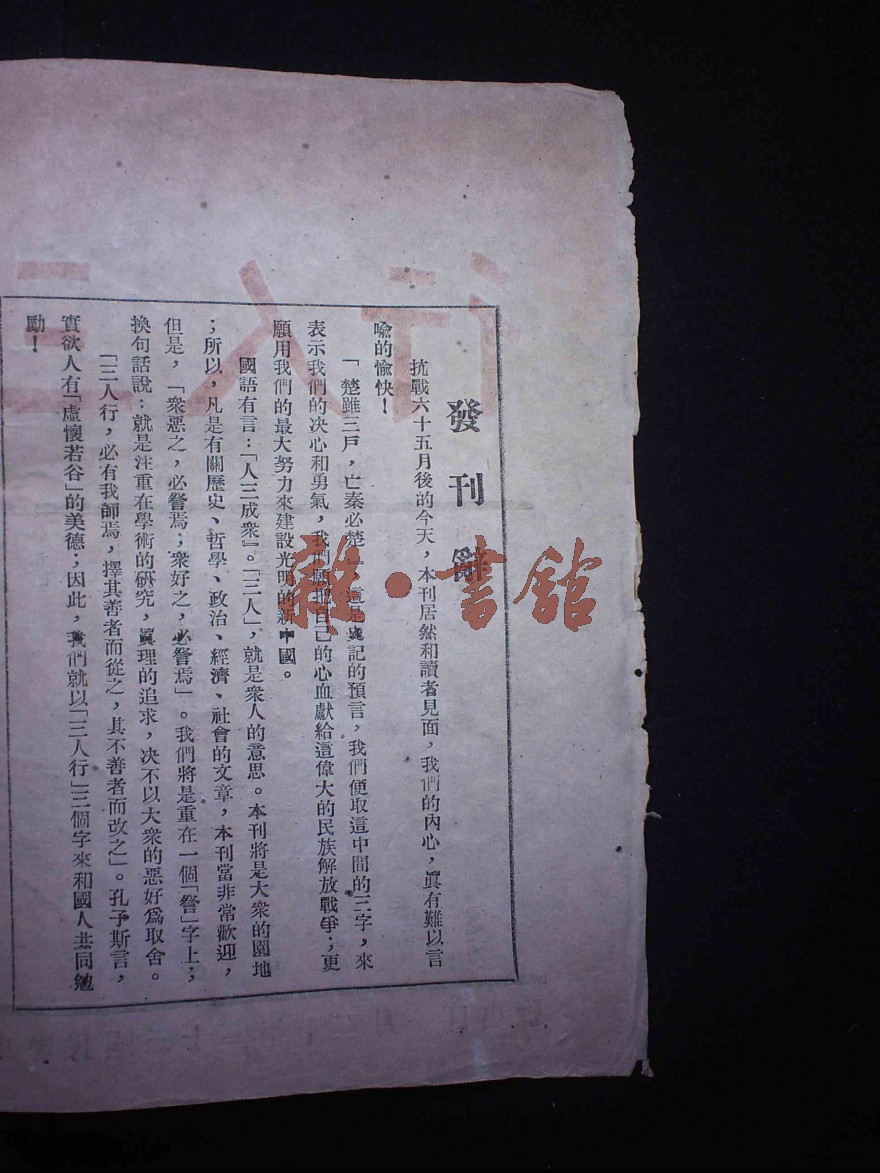 發刊辭
抗戰六十五月後的今天，本刊居然和讀者見面，我們的內心，眞有難以言
喩的愉快！
「楚雖三戶，亡秦必楚」這是史記的預言，我們便取這中間的三字，來
表示我們的决心和勇氣，我們願把自己的心血獻給這偉大的民族解放戰爭；更
願用我們的最大努力來建設光明的新中國。
國語有言：「人三成衆」。「三人」，就是衆人的意思。本刊將是大衆的園地
；所以，凡是有關歷史、哲學、政治、經濟、社會的文章，本刊當非常歡迎，
但是，「衆惡之，必詧焉；衆好之，必詧焉」。我們將是重在一個「詧」字上；
換句話說：就是注重在學術的硏究，眞理的追求，决不以大衆的惡好爲取舍。
「三人行，必有我師焉，擇其善者而從之，其不善者而改之」。孔子斯言，
實欲人有「虛懷若谷」的美德；因此，我們就以「三人行」三個字來和國人共同勉
勵！
雜·書館
三人行